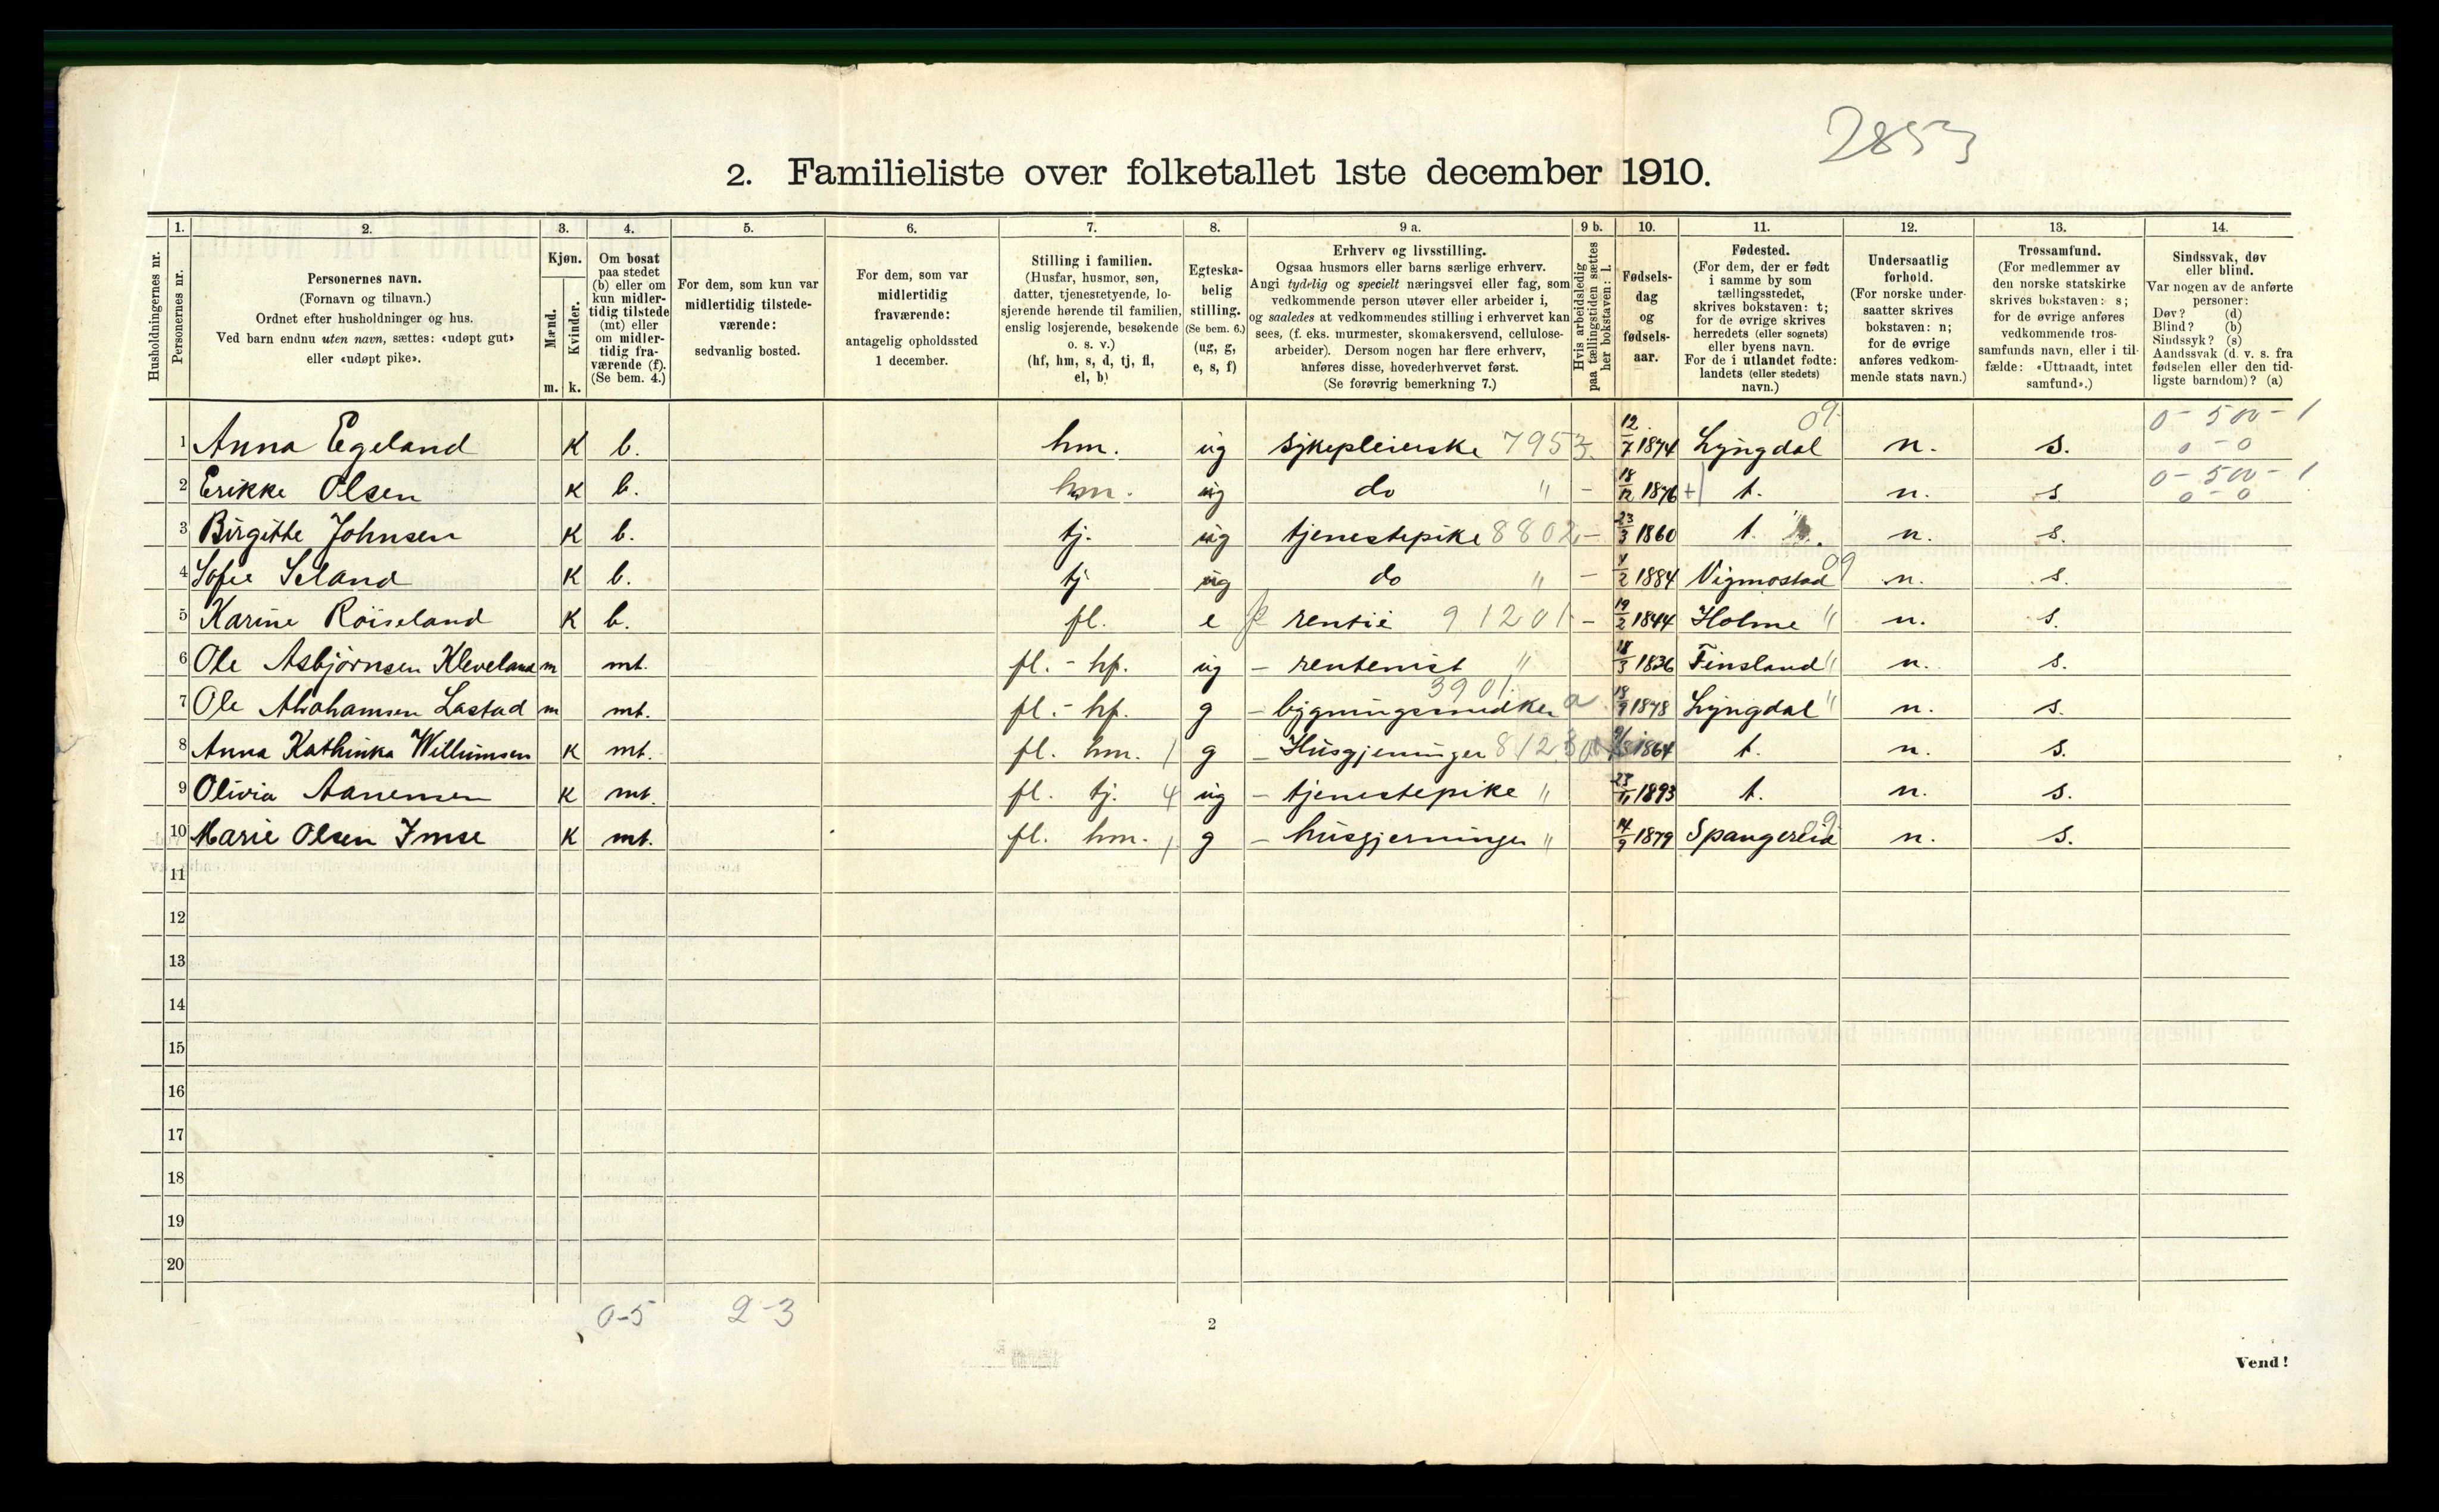 2853
2. Familieliste over folketallet 1ste december 1910.
Husholdningernes nr.
1. Personernes nr.
2. Personernes navn.
(Fornavn og tilnavn.)
Ordnet efter husholdninger og hus.
Ved barn endnu uten navn, sættes: «udøpt gut»
eller «udøpt pike».
3. Kjøn.
Mænd. m.
Kvinder. k.
4. Om bosat
paa stedet
(b) eller om
kun midler-
tidig tilstede
(mt) eller
om midler-
tidig fra-
værende (f).
(Se bem. 4.)
5. For dem, som kun var
midlertidig tilstede-
værende:
sedvanlig bosted.
6. For dem, som var
midlertidig
fraværende:
antagelig opholdssted
1 december.
7. Stilling i familien.
(Husfar, husmor, søn,
datter, tjenestetyende, lo-
sjerende hørende til familien,
enslig losjerende, besøkende
o. s. v.)
(hf, hm, s, d, tj, fl,
el, b)
8. Egteska-
belig
stilling.
(Se bem. 6.)
(ug, g,
e, s, f)
9 a. Erhverv og livsstilling.
Ogsaa husmors eller barns særlige erhverv.
Angi tydelig og specielt næringsvei eller fag, som
vedkommende person utøver eller arbeider i,
og saaledes at vedkommendes stilling i erhvervet kan
sees, (f. eks. murmester, skomakersvend, cellulose-
arbeider). Dersom nogen har flere erhverv,
anføres disse, hovederhvervet først.
(Se forøvrig bemerkning 7.)
9 b. Hvis arbeidsledig
paa tællingstiden sættes
her bokstaven: l.
10. Fødsels-
dag
og
fødsels-
aar.
11. Fødested.
(For dem, der er født
i samme by som
tællingsstedet,
skrives bokstaven: t;
for de øvrige skrives
herredets (eller sognets)
eller byens navn.
For de i utlandet fødte:
landets (eller stedets)
navn.)
12. Undersaatlig
forhold.
(For norske under-
saatter skrives
bokstaven: n;
for de øvrige
anføres vedkom-
mende stats navn.)
13. Trossamfund.
(For medlemmer av
den norske statskirke
skrives bokstaven: s;
for de øvrige anføres
vedkommende tros-
samfunds navn, eller i til-
fælde: «Uttraadt, intet
samfund».)
14. Sindssvak, døv
eller blind.
Var nogen av de anførte
personer:
Døv? (d)
Blind? (b)
Sindssyk? (s)
Aandssvak (d. v. s. fra
fødselen eller den tid-
ligste barndom)? (a)
1 Anna Egeland K b. hm. ug sykepleierske 7953 12/7 1874 Lyngdal 09 n. s. 0-500-1 0-0
2 Erikke Olsen K b. hm. ug do " - 18/12 1876 + t. n. s 0-500-1 0-0
3 Birgitte Johnsen K b. tj. ug tjenestepike 8802 - 23/3 1860 t. n. s.
4 Sofie Seland K b. tj ug do " - 4/2 1884 Vigmostad 09 n. s.
5 Karine Röiseland K b. fl. e rentie 91201 - 19/2 1844 Holme " n. s.
6 Ole Asbjörnsen Kleveland m mt. fl. - hf. ug - rentenist " 18/3 1836 Finsland " n. s.
7 Ole Abrahamsen Lastad m mt. fl. - hf. g - bygningssnedker 3901. a 18/9 1878 Lyngdal " n. s.
8 Anna Kathinka Willumsen K mt. fl. hm. 1 g - Husgjerninger 1864 t. n. s.
9 Olivia Aanensen K mt. fl. tj. 4 ug - tjenestepike " 23/11 1893 t. n. s.
10 Marie Olsen Imse K mt. fl. hm. 1 g - husgjerninger " 14/9 1879 Spangereid 9 n. s.
11
12
13
14
15
16
17
18
19
20
0-5 2-3
2
Vend!